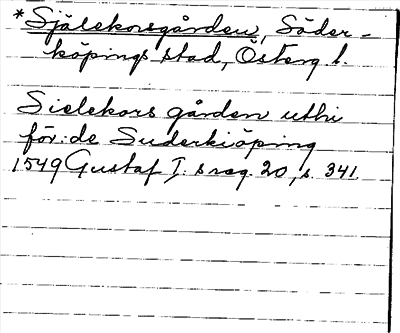 * Själekorsgården, Söder-
köpings stad, Österg. l.
Sielekors gården uthi
för:de Suderkiöping
1549 Gustaf I:s reg. 20, s. 341.